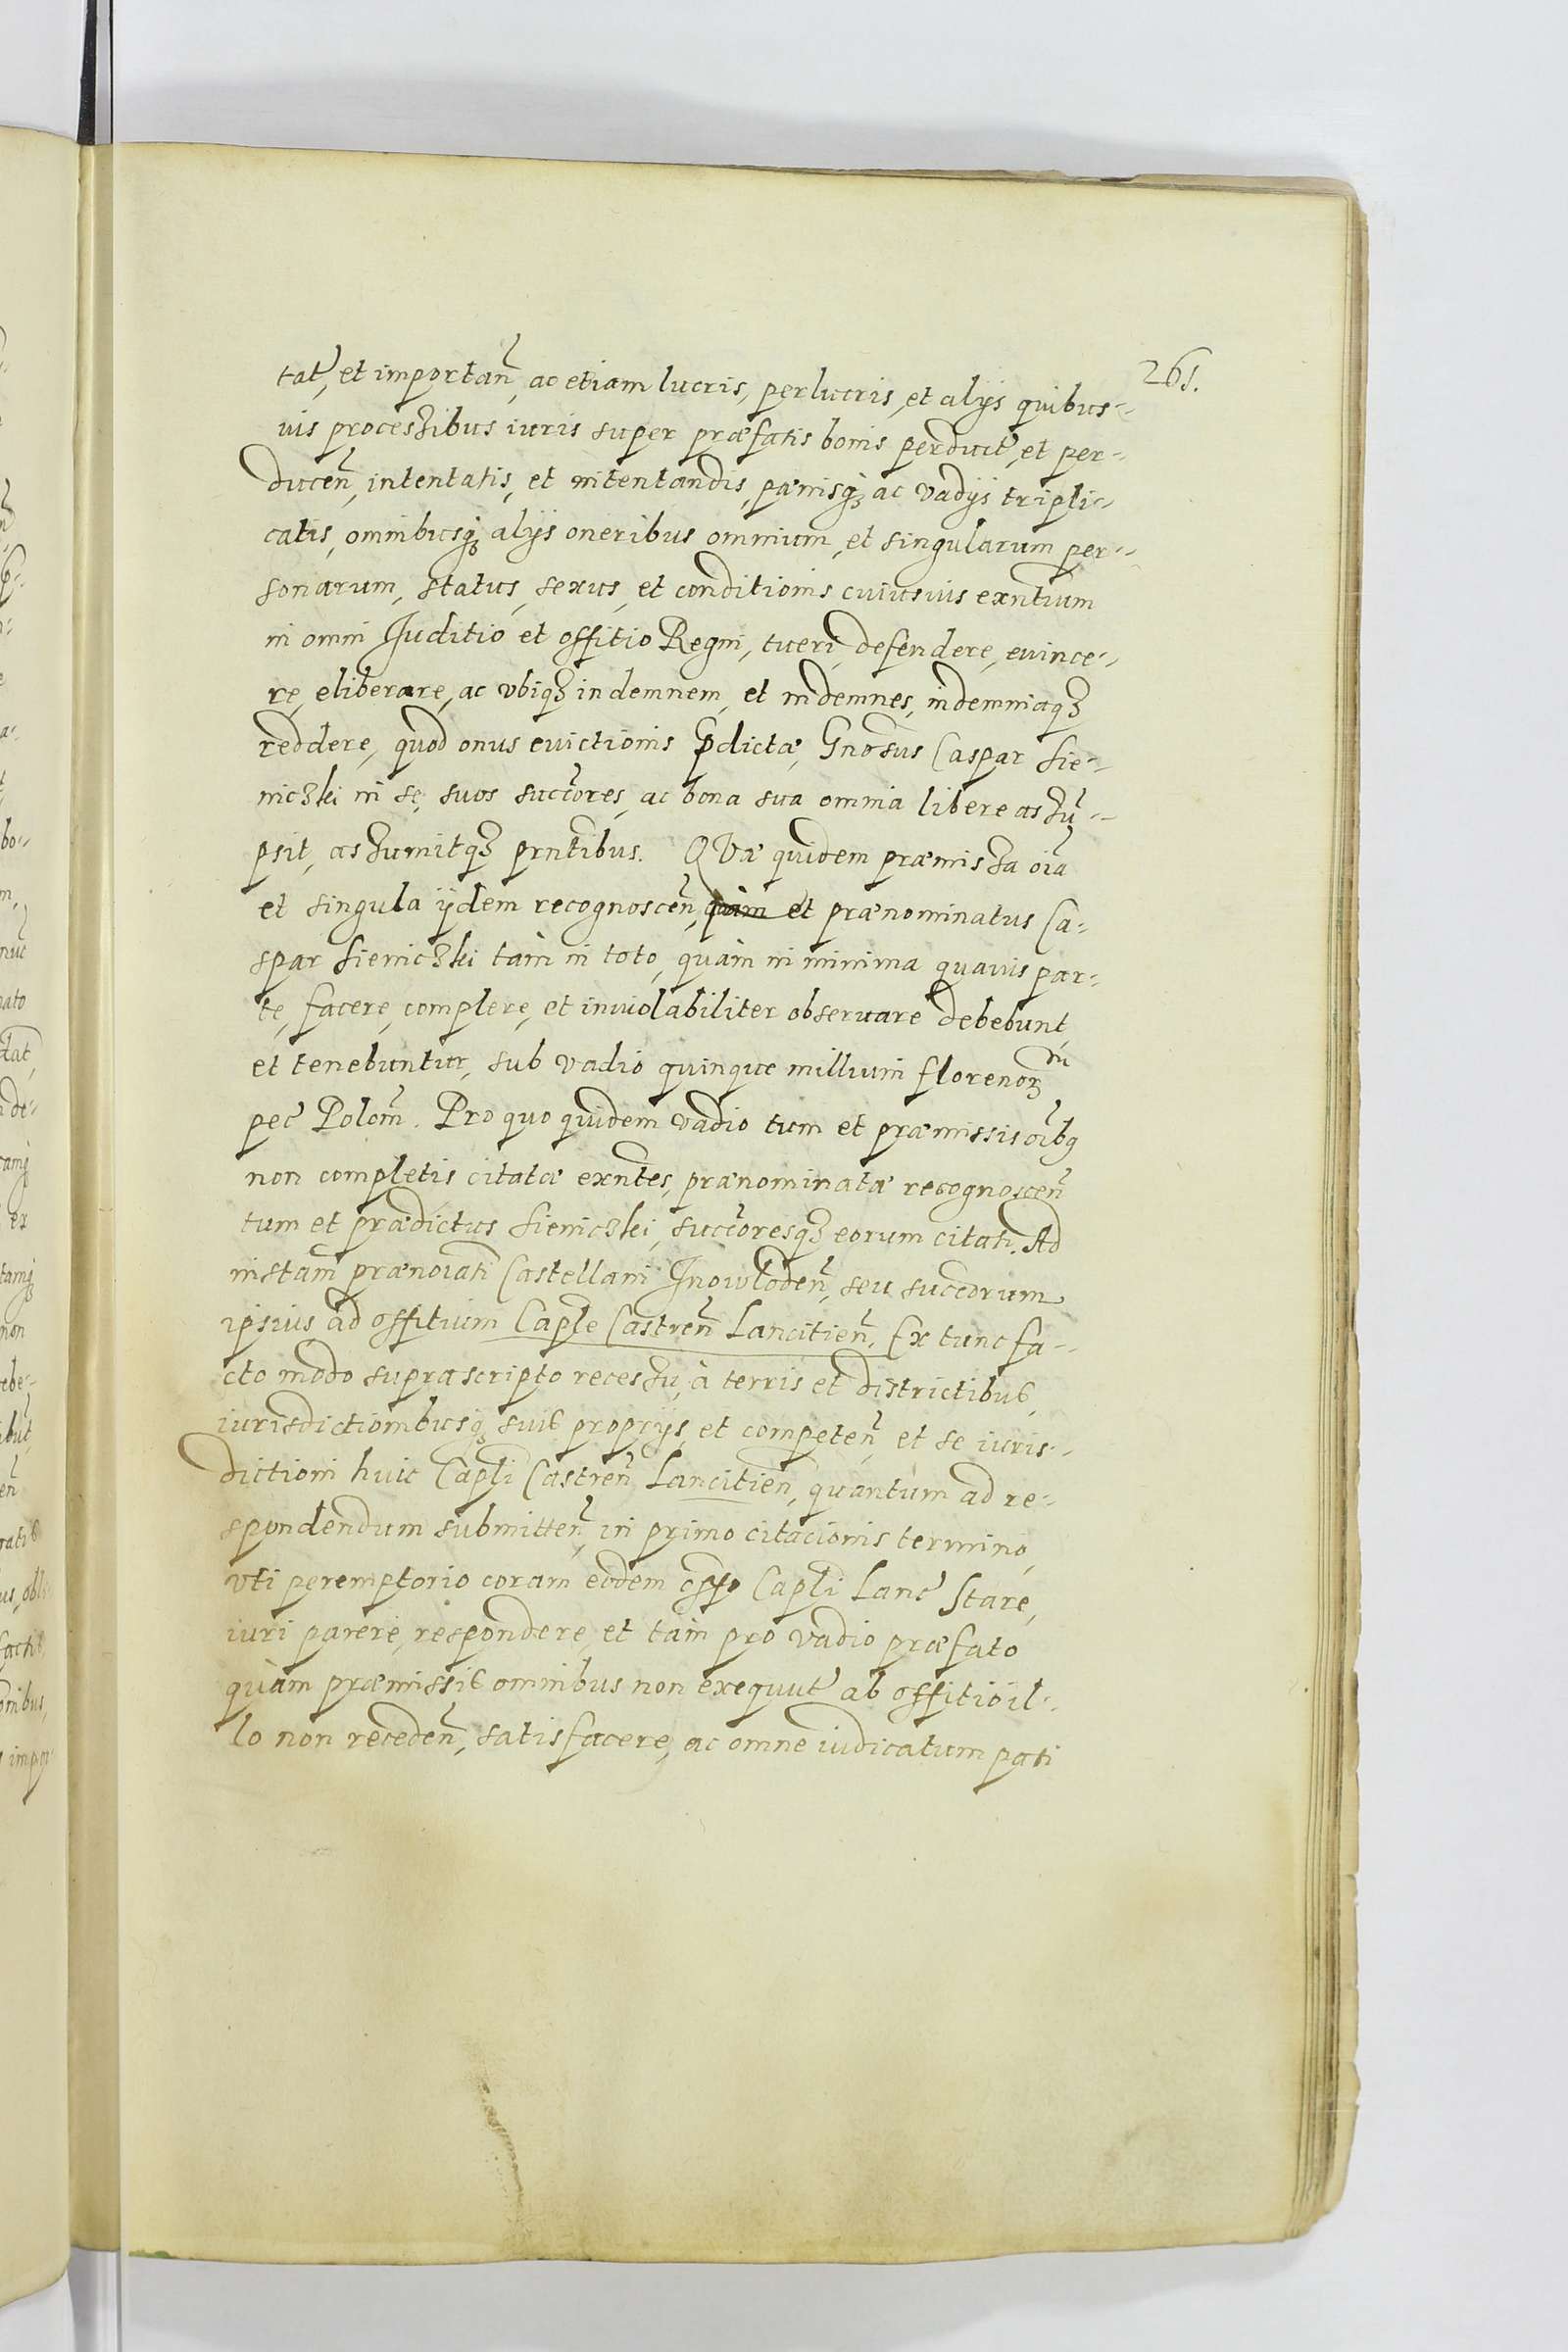 261.
tat, et importan̄, ac etiam lucris, perlucris, et alijs quibus-
uis processibus iuris super præfatis bonis perduct, et per-
ducen̄, intentatis, et intentandis, pænisq; ac vadijs tripli-
catis, omnibusq; alijs oneribus omnium, et singularum per-
sonarum, status, sexus, et conditionis cuiusuis exn̄tium
in omni Juditio et offitio Regni, tueri, defendere, euince-
re, eliberare, ac vbiq; indemnem, et indemnes, indemniaq;
reddere, quod onus euictionis p̄dictæ, Gnosus Caspar Sie-
niczki in se, suos succ̄ores, ac bona sua omnia libere assū-
psit, assumitq; prn̄tibus. QVæ quidem præmissa oīa
et singula ijdem recognoscen̄, quàm et prænominatus Ca-
spar Sieniczki tàm in toto, quàm in minima quauis par-
te, facere, complere, et inuiolabiliter obseruare debebunt,
et tenebuntur, sub vadio quinque millium florenor̄ nū
pec Polon̄. Pro quo quidem vadio tum et præmissis oībq
non completis citatæ exn̄tes, prænominatæ recognoscen̄
tum et prædictus Sieniczki, succ̄oresq; eorum citati. Ad
instan̄ prænoīati Castellani Jnowloden̄, seu succ̄orum
ipsius ad offitium Caple Castren̄ Lancitien̄. Ex tunc fa-
cto modo suprascripto recessu, à terris et districtibus,
iurisdictionibusq; suis proprijs, et competen̄, et se iuris-
dictioni huic Capli Castren̄ Lancitien̄, quantum ad re-
spondendum submitten̄, in primo citacionis termino,
vti peremptorio coram eodem Capli Lanc Stare,
iuri parere, respondere, et tàm pro vadio præfato
quàm præmissis omnibus non exequut ab offitio il-
lo non receden̄, satisfacere, ac omne iudicatum pati